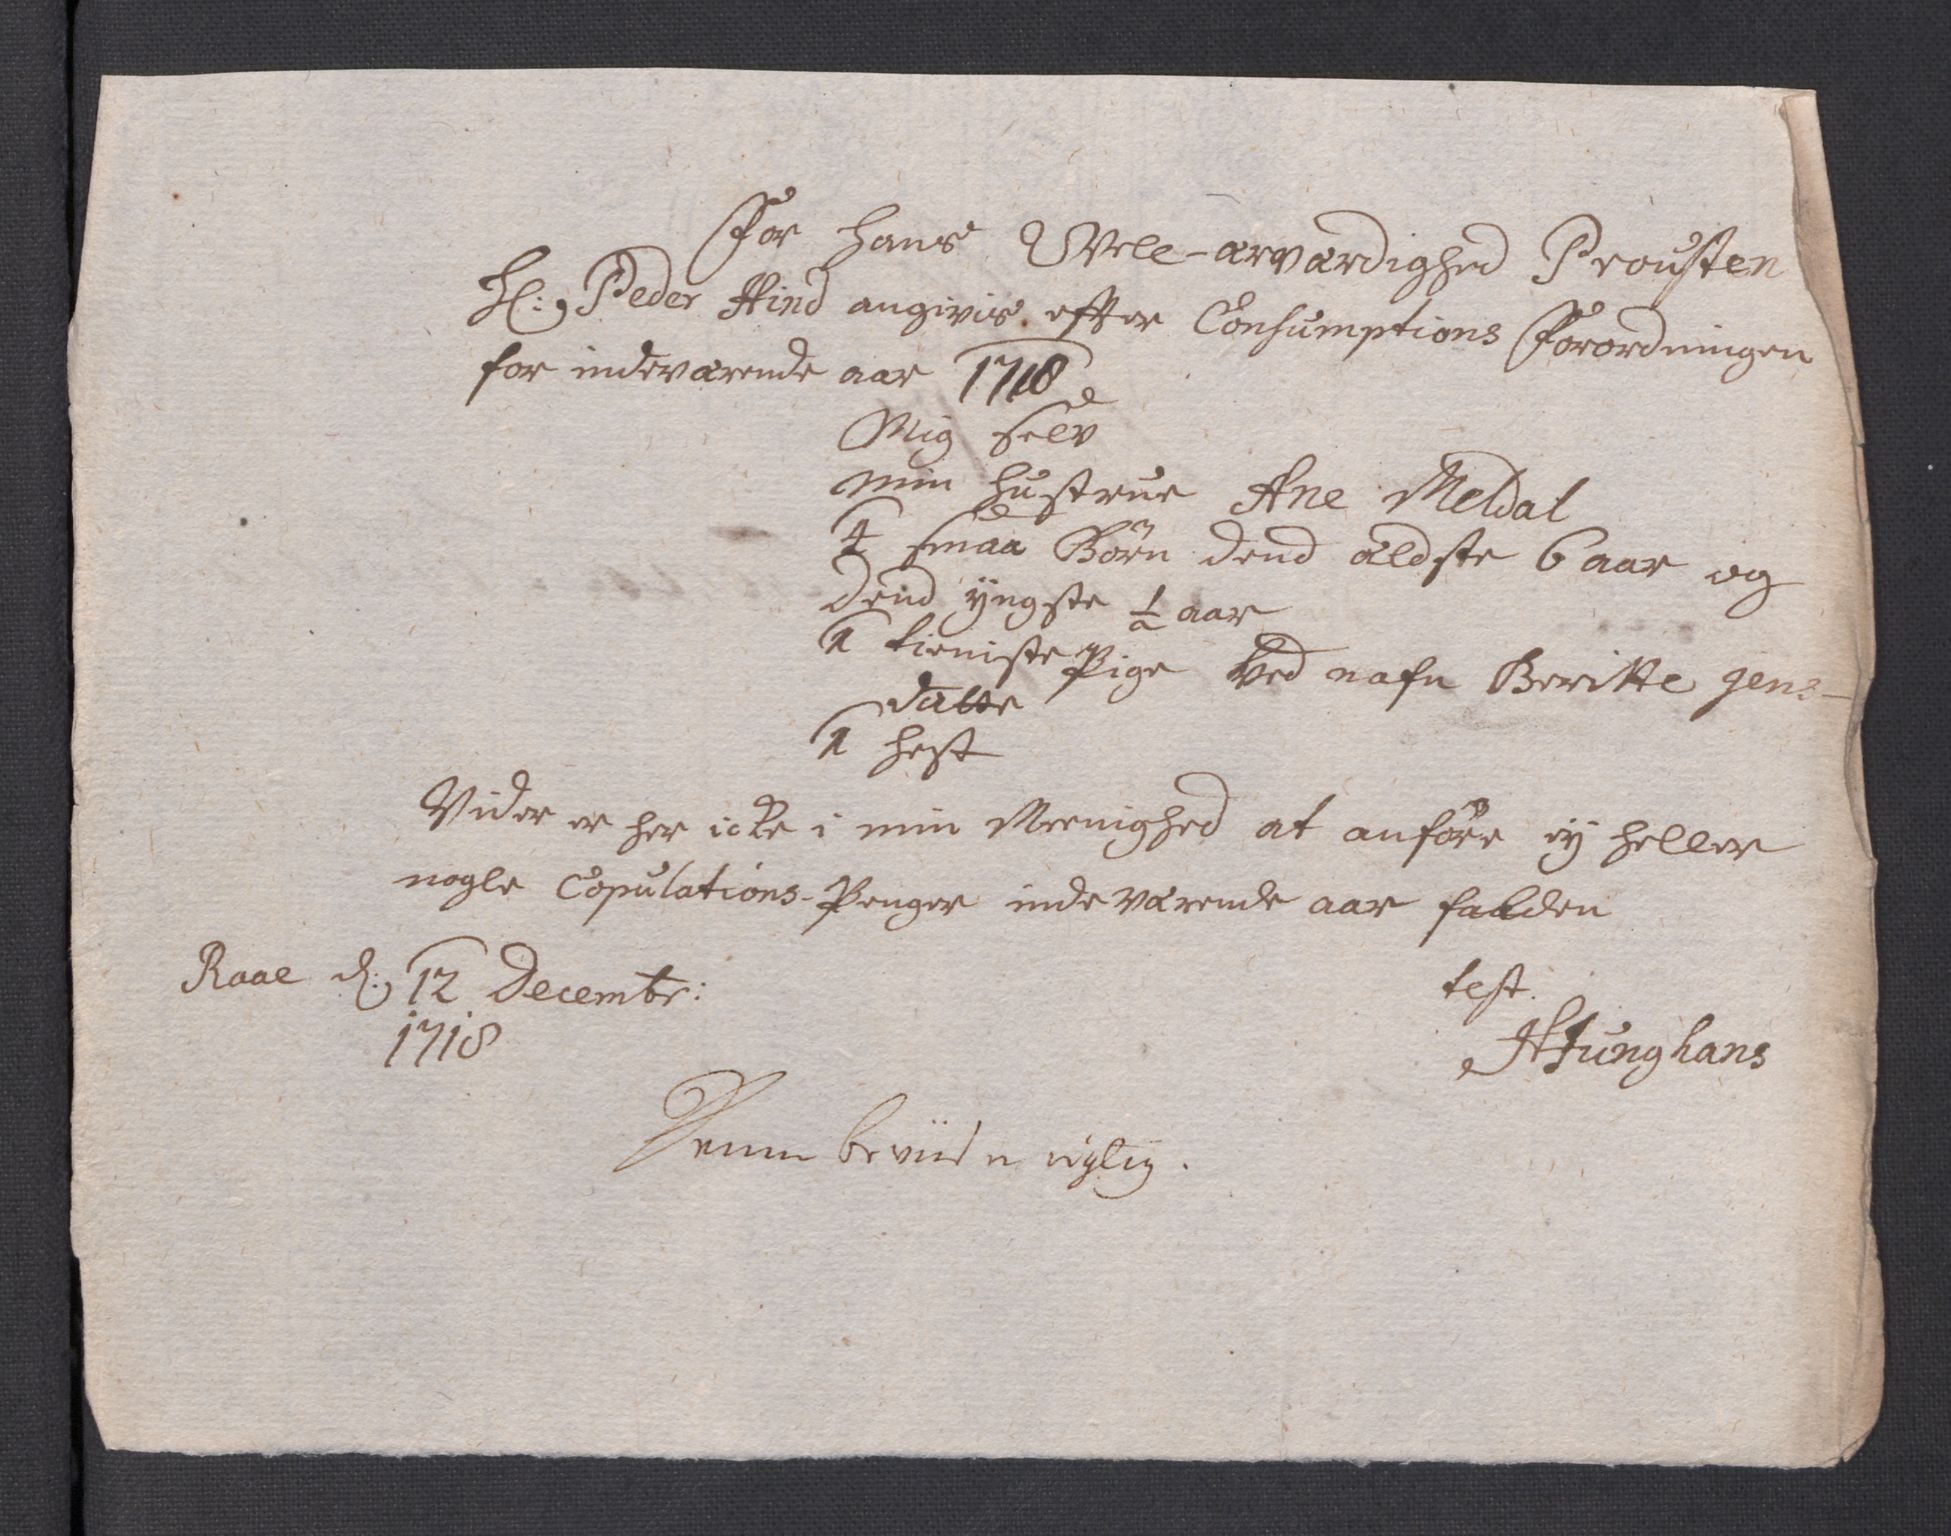 For hans Welle-ærværdighed Prousten
Hl: Peder Hind angivis efter Consumptions Forordningen
for indeværende aar 1718
Mig selv
min hustrue Ane Meldal
4 smaa Börn dend ældste 6 aar og
dend ÿngste ½ aar
1 tieniste Pige ved nafn Beritte Jens-
datter
1 hest
Vider er her icke i min Meenighed at anföre eÿ heller
nogle Copulations-Penger indeværende aar falden
Raae d: 12 Decembr:
1718
test.
HJunghans